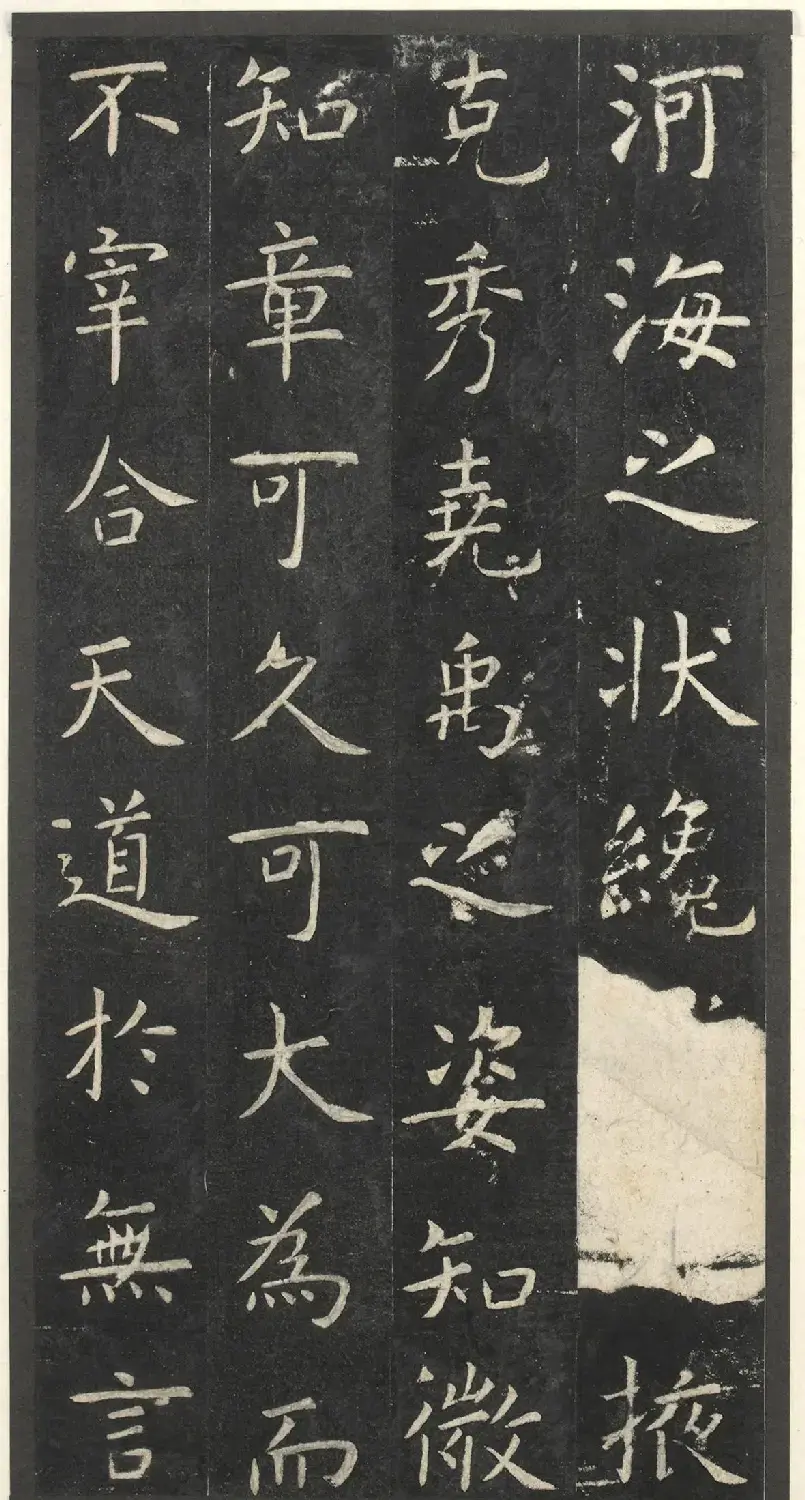 河海之状纔掖
克秀堯禹之姿知微
知章可久可大為而
不宰合天道於無言